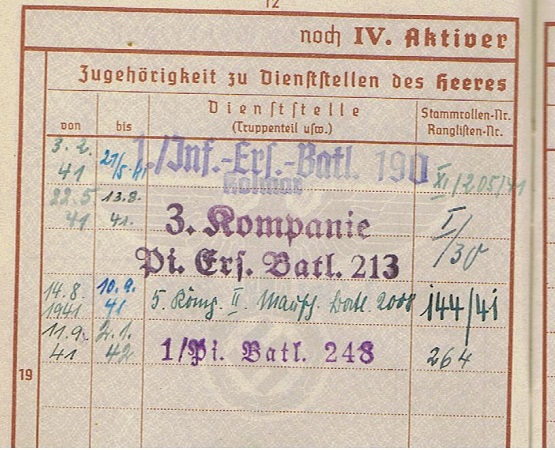 12
noch IV. Aktiver
Zugehörigkeit zu Dienststellen des Heeres
von
bis
Dienststelle
(Truppenteil usw.)
Stammrollen-Nr.
Ranglisten-Nr.
3. 2. 41
21/5 41
1./Inf.-Ers.-Batl. 190
XI/205/41
22.5 41
13.8. 41.
3. Kompanie
Pi. Ers. Batl. 213
I/30
14.8. 1941
10.9. 41
5. II. Batl. 2008
144/41
11.9. 41
2.1. 42
1/Pi. Batl. 248
264
19